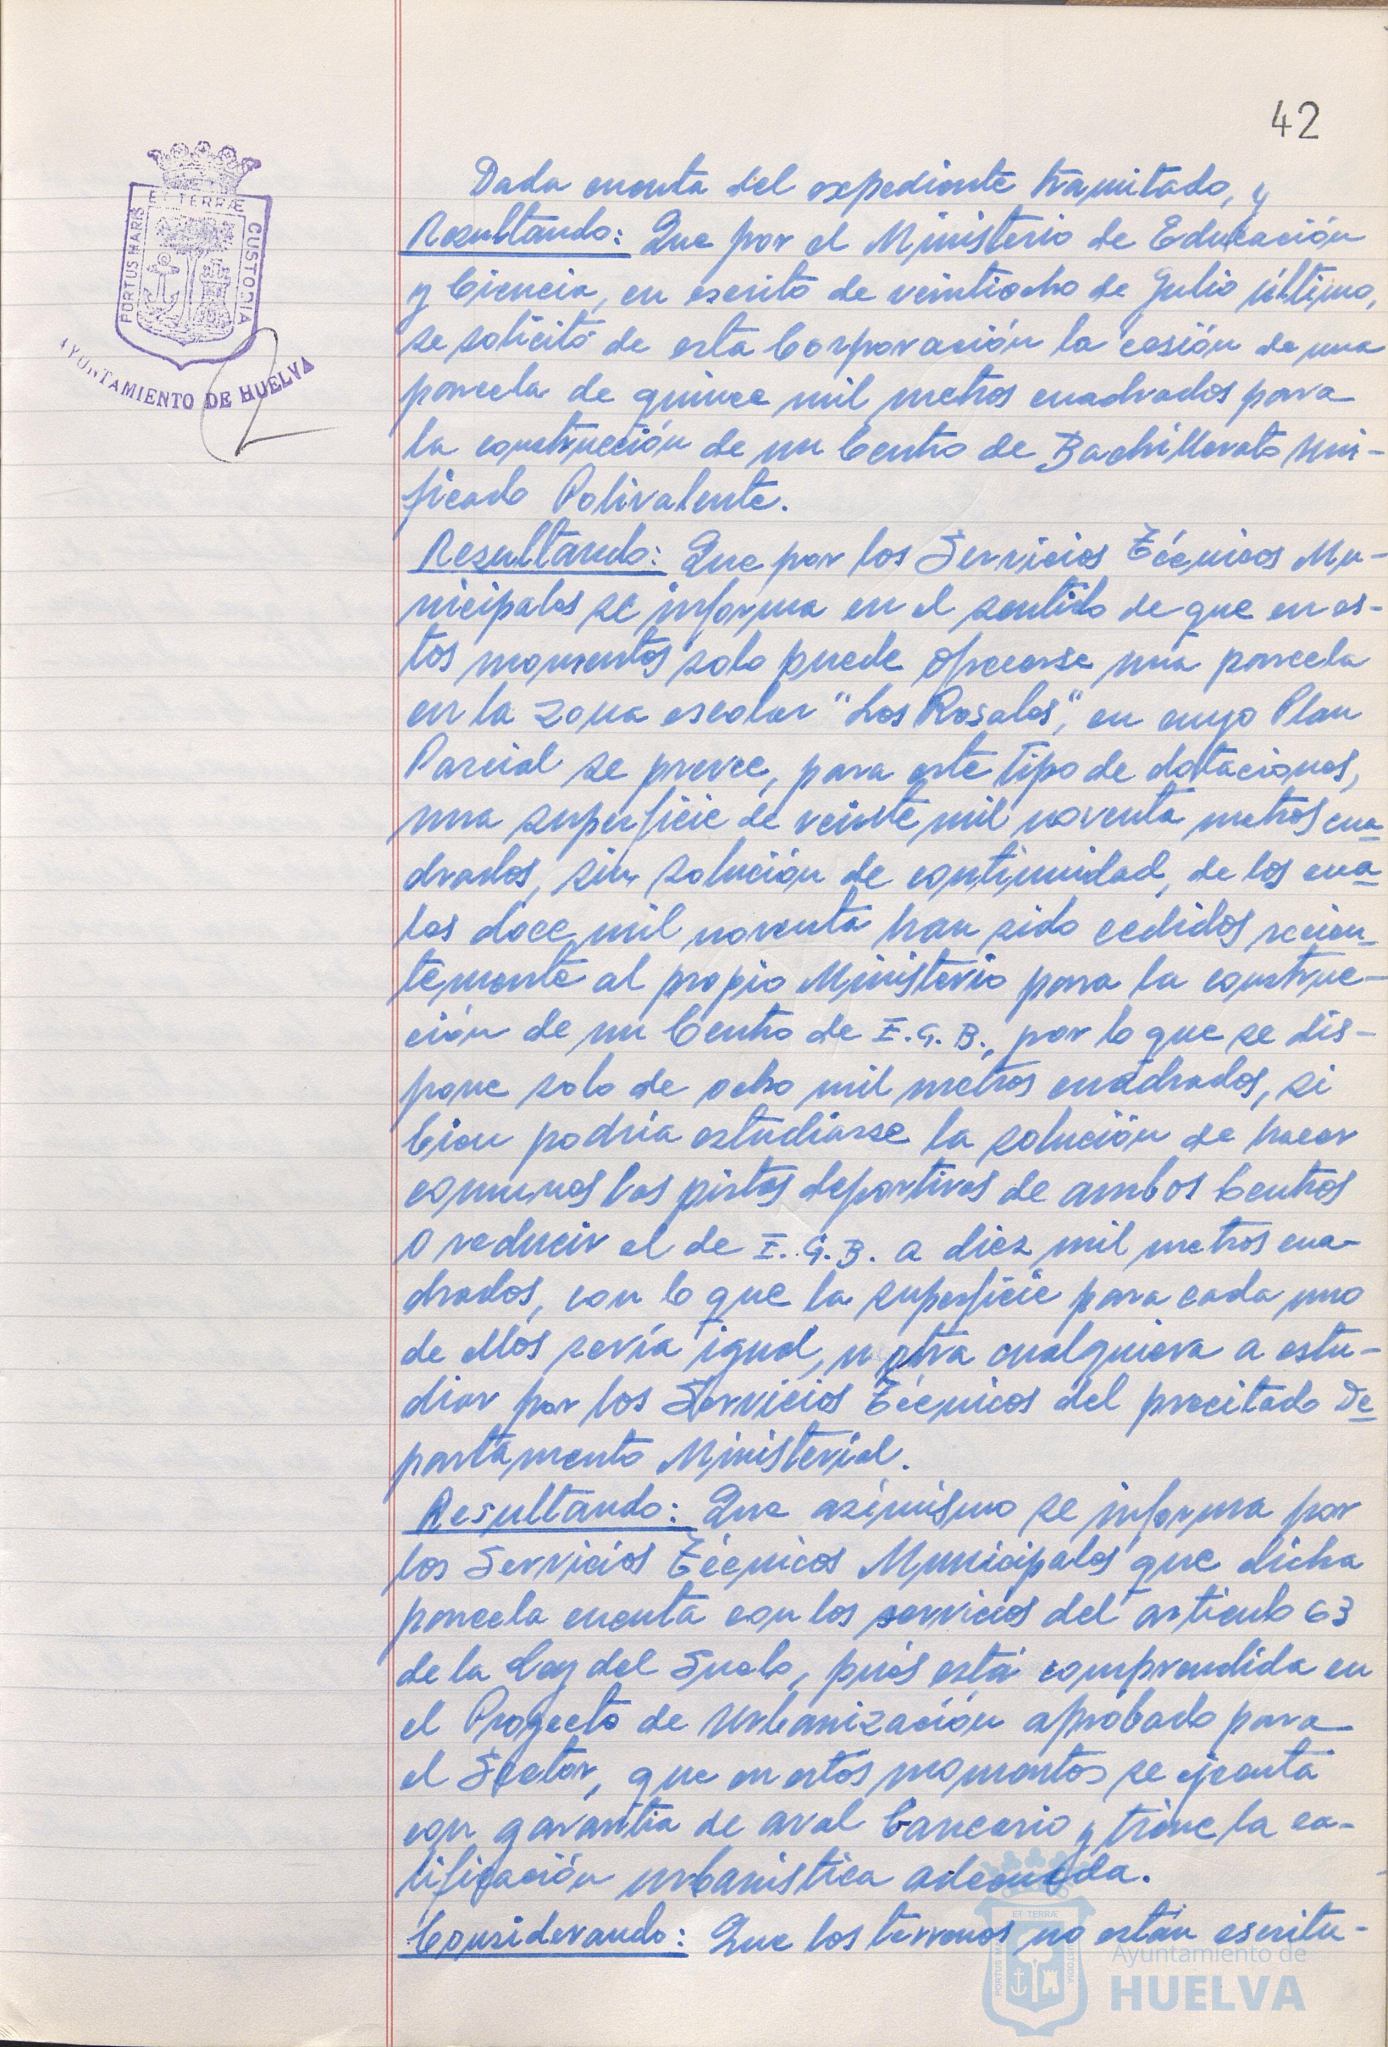 42
ET TERRÆ
PORTUS MARIS
CUSTODIA
AYUNTAMIENTO DE HUELVA
Dada cuenta del expediente tramitado, y
Resultando: Que por el Ministerio de Educación
y Ciencia, en escrito de veintiocho de Julio último,
se solicitó de esta Corporación la cesión de una
parcela de quince mil metros cuadrados para
la construcción de un Centro de Bachillerato Uni-
ficado Polivalente.
Resultando: Que por los Servicios Técnicos Mu-
nicipales se informa en el sentido de que en es-
tos momentos solo puede ofrecerse una parcela
en la zona escolar "Los Rosales", en cuyo Plan
Parcial se prevee, para este tipo de dotaciones,
una superficie de veinte mil noventa metros cua-
drados, sin solución de continuidad, de los cua-
les doce mil noventa han sido cedidos recien-
temente al propio Ministerio para la construc-
ción de un Centro de E.G.B., por lo que se dis-
pone solo de ocho mil metros cuadrados, si
bien podría estudiarse la solución de hacer
comunes las pistas deportivas de ambos Centros
o reducir el de E.G.B. a diez mil metros cua-
drados, con lo que la superficie para cada uno
de ellos sería igual, u otra cualquiera a estu-
diar por los Servicios Técnicos del precitado De-
partamento Ministerial.
Resultando: Que asimismo se informa por
los Servicios Técnicos Municipales que dicha
parcela cuenta con los servicios del artículo 63
de la Ley del Suelo, pués está comprendida en
el Proyecto de Urbanización aprobado para
el Sector, que en estos momentos se ejecuta
con garantía de aval bancario y tiene la ca-
lificación urbanística adecuada.
Considerando: Que los terrenos no están escritu-
ET TERRÆ
PORTUS MARIS
CUSTODIA
Ayuntamiento de
HUELVA